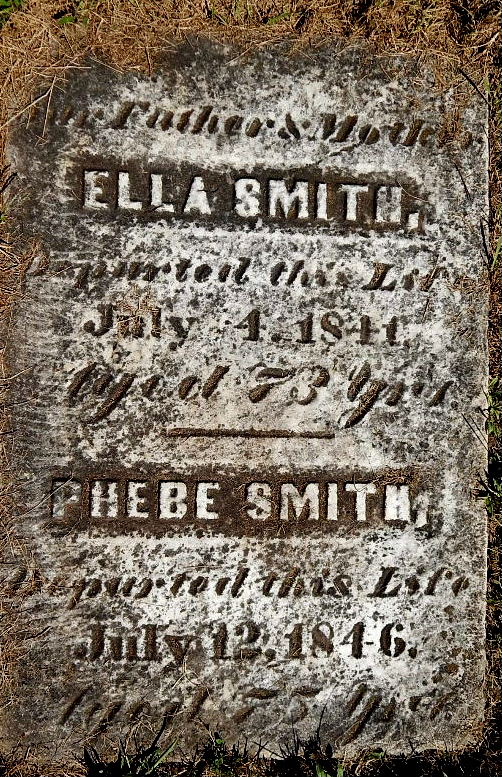 Our Father & Mother
ELLA SMITH,
Departed this Life
July 4, 1841,
Aged 73 Yrs
PHEBE SMITH,
Departed this Life
July 12, 1846.
Aged 75 Yrs